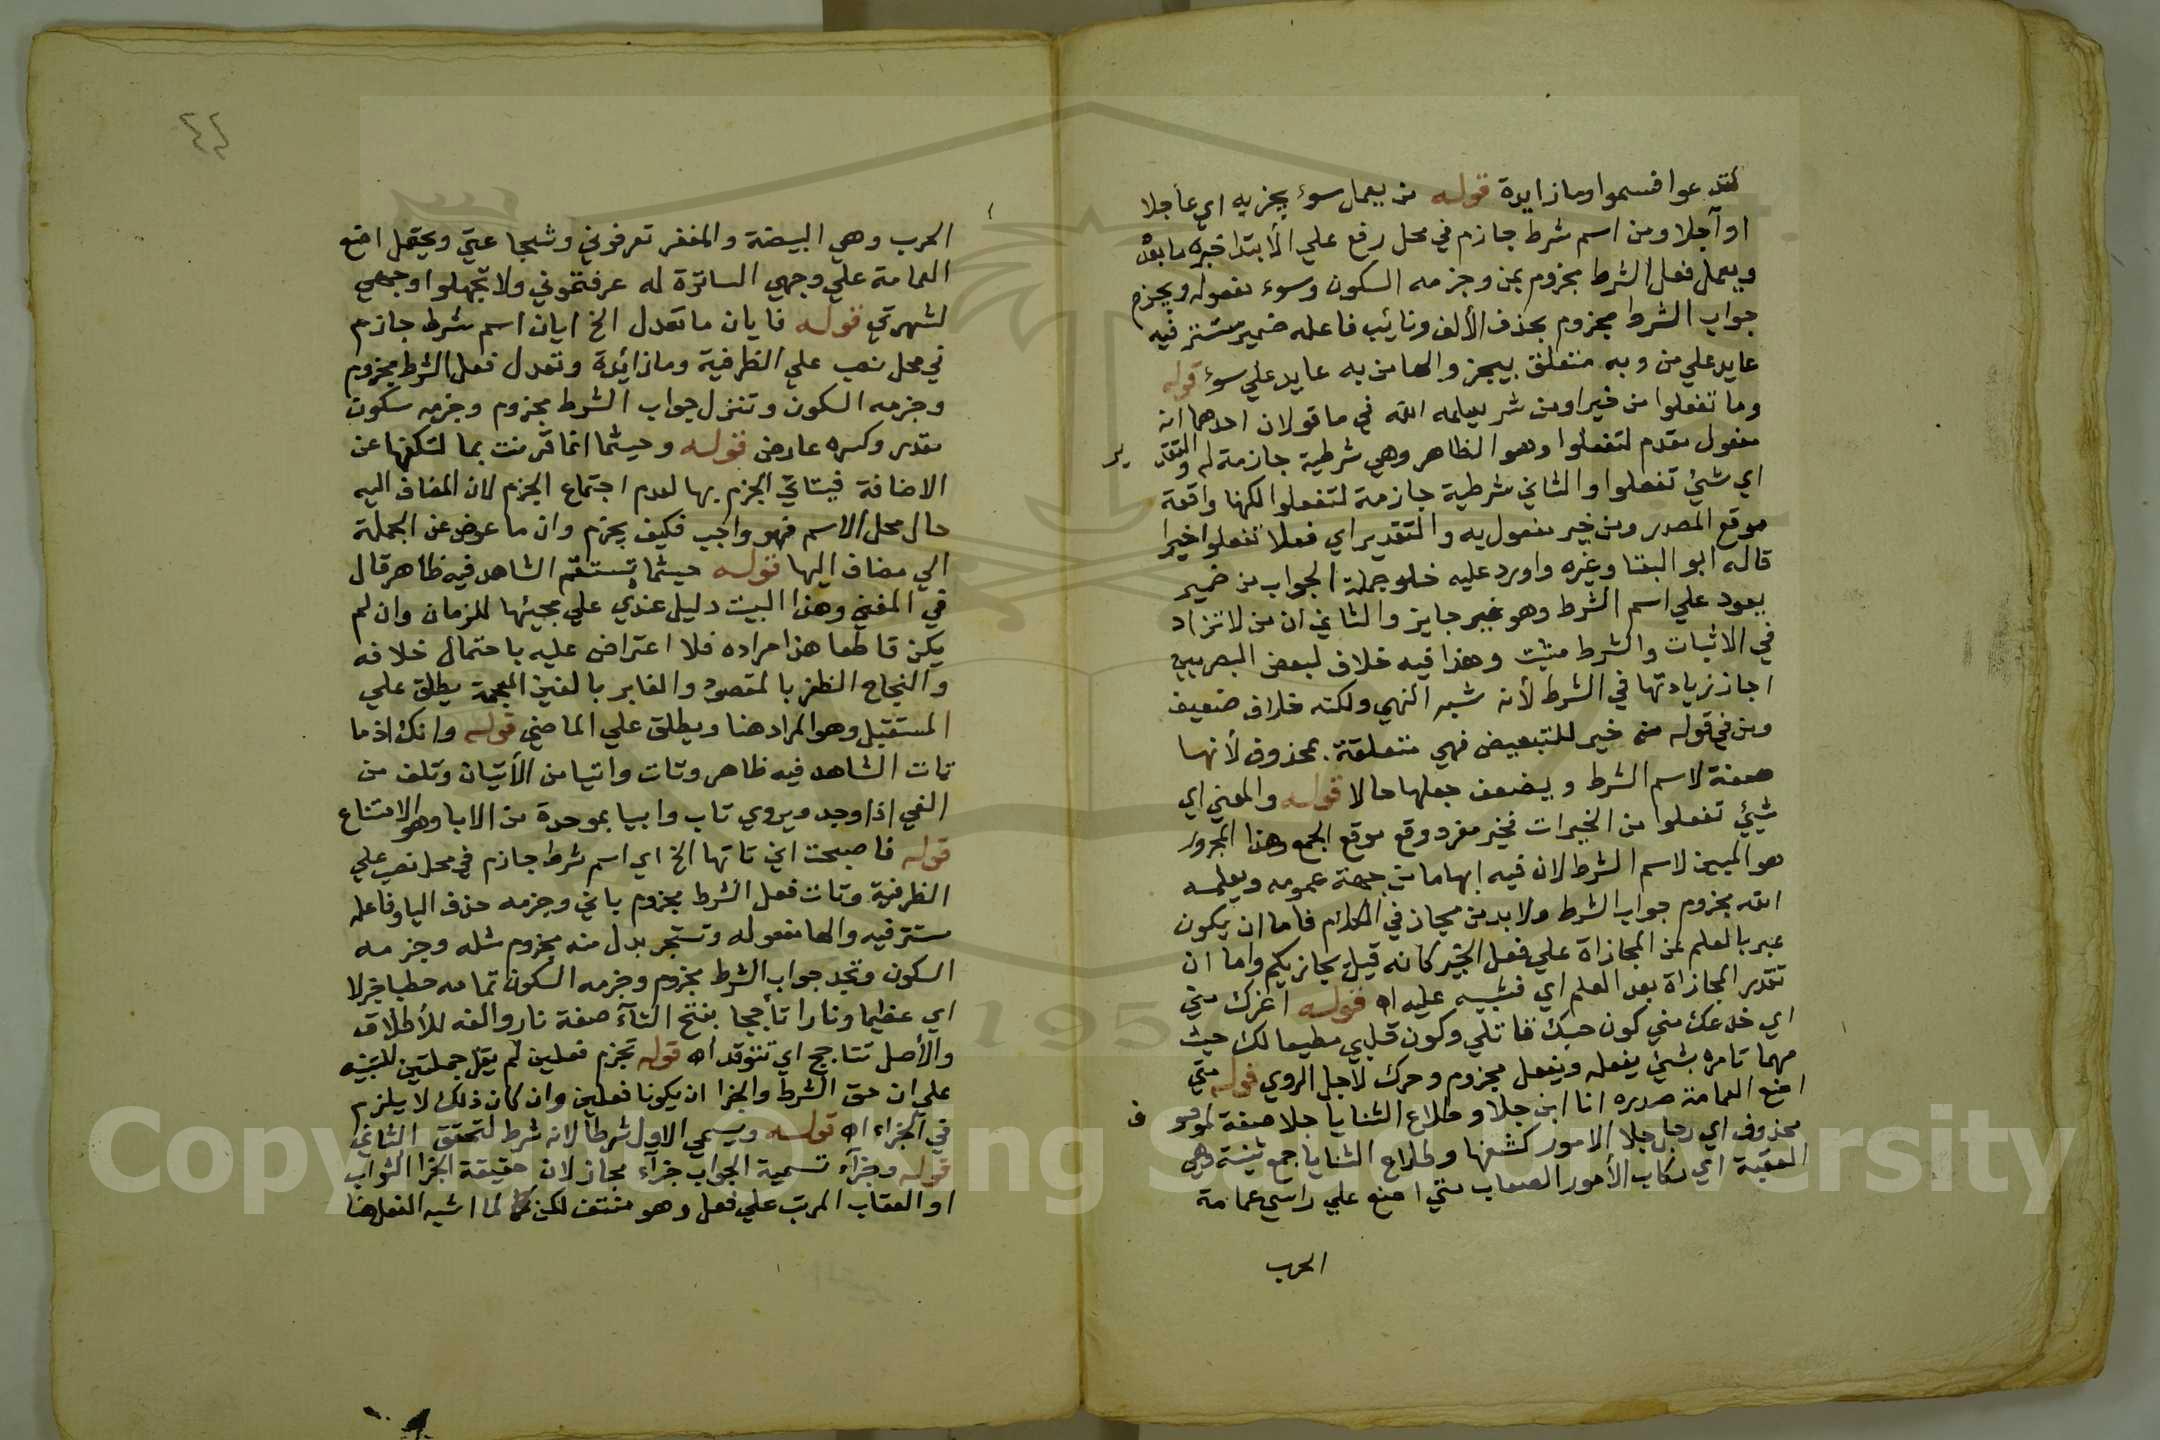 كتدعوا فسموا وما زايدة قوله من يعمل سوء يجز به اي عاجلا
او آجلا ومن اسم شرط جازم في محل رفع علي الأبتدا خبره ما بعده
ويعمل فعل الشرط مجزوم بمن وجزمه السكون وسوء مفعوله ويجزم
جواب الشرط مجزوم بحذف الألف ونائب فاعله ضمير مستتر فيه
عايد علي من وبه متعلق بيجز والها من به عايد علي سوء قوله
وما تفعلوا من خير او من شر يعلمه الله في ما قولان احدهما انه
مفعول مقدم لتفعلوا وهو الظاهر وهي شرطية جازمة له والتقدير
اي شئ تفعلوا والثاني شرطية جازمة لتفعلوا لكنها واقعة
موقع المصدر ومن خير مفعول به والتقدير اي فعلا تفعلوا خيرا
قاله ابو البقا وغيره واورد عليه خلو جملة الجواب من ضمير
يعود علي اسم الشرط وهو غير جايز والثاني ان من لا تزاد
في الاثبات والشرط مثبت وهذا فيه خلاف لبعض البصريين
اجاز زيادتها في الشرط لأنه شبه النهي ولكنه خلاف ضعيف
ومن في قوله من خير للتبعيض فهي متعلقة بمحذوف لأنها
صفة لاسم الشرط ويضعف جعلها حالا قوله والمعني اي
شيئ تفعلوا من الخيرات فخير مفرد وقع موقع الجمع وهذا المجرور
هو المبين لاسم الشرط لان فيه ابهاما من جهة عمومه ويعلمه
الله مجزوم جواب الشرط ولا بد من مجاز في الكلام فاما ان يكون
عبر بالعلم عن المجازاة علي فعل الخير كانه قيل يجازيكم واما ان
تقدر المجازاة بعد العلم اي فيثيبه عليه اه قوله اغرك مني
اي خدعك مني كون حبك قاتلي وكون قلبي مطيعا لك حيث
مهما تامره بشيئ يفعله ويفعل مجزوم وحرك لاجل الروي قوله متي
اضع العمامة صدره انا ابن جلا وطلاع الثنايا جلا صفة لموصوف
محذوف اي رجل جلا الامور كشفها وطلاع الثنايا جمع ثنية وهي
العقبة اي ركاب الأمور الصعاب متي اضع علي راسي عمامة
الحرب
٤٤
الحرب وهي البيضة والمغفر تعرفوني وشجاعتي ويحتمل اضع
العمامة علي وجهي الساترة له عرفتموني ولا تجهلوا وجهي
لشهرتي قوله فايان ما تعدل الخ ايان اسم شرط جازم
في محل نصب علي الظرفية وما زائدة وتعدل فعل الشرط مجزوم
وجزمه السكون وتنزل جواب الشرط مجزوم وجزمه سكون
مقدر وكسره عارض قوله وحيثما انما قرنت بما لتكفها عن
الاضافة فيتاتي الجزم بها لعدم اجتماع الجزم لان المضاف اليه
حال محل الاسم فهو واجب فكيف يجزم وان ما عوض عن الجملة
الي مضاف اليها قوله حيثما تستقم الشاهد فيه ظاهر قال
في المغني وهذا البيت دليل عندي علي مجيئها للزمان وان لم
يكن قاطعا هذا مراده فلا اعتراض عليه باحتمال خلافه
والنجاح الظفر بالمقصود والغابر بالغين المعجمة يطلق علي
المستقبل وهو المراد هنا ويطلق علي الماضي قوله وانك اذما
تات الشاهد فيه ظاهر وتات واتيا من الأتيان وتلف من
الفي اذا وجد ويروي تاب وابيا بموحدة من الابا وهو الامتناع
قوله فاصبحت اني تاتها الخ اي اسم شرط جازم في محل نصب علي
الظرفية وتات فعل الشرط مجزوم باني وجزمه حذف اليا وفاعله
مستتر فيه والها مفعوله وتستجر بدل منه مجزوم مثله وجزمه
السكون وتجد جواب الشرط مجزوم وجزمه السكون تمامه حطبا جزلا
اي عظيما ونارا تأججا بفتح التآء صفة نار والفه للأطلاق
والأصل تتاجج اي تتوقد اه قوله تجزم فعلين لم يقل جملتين للتنبيه
علي ان حق الشرط والجزا ان يكونا فعلين وان كان ذلك لا يلزم
في الجزاء اه قوله ويسمي الاول شرطا لانه شرط لتحقق الثاني
قوله وجزآء تسمية الجواب جزآء مجاز لان حقيقة الجزا الثواب
او العقاب المرتب علي فعل وهو منتف لكن لما اشبه الفعل هنا
Copyright © King Saud University
195